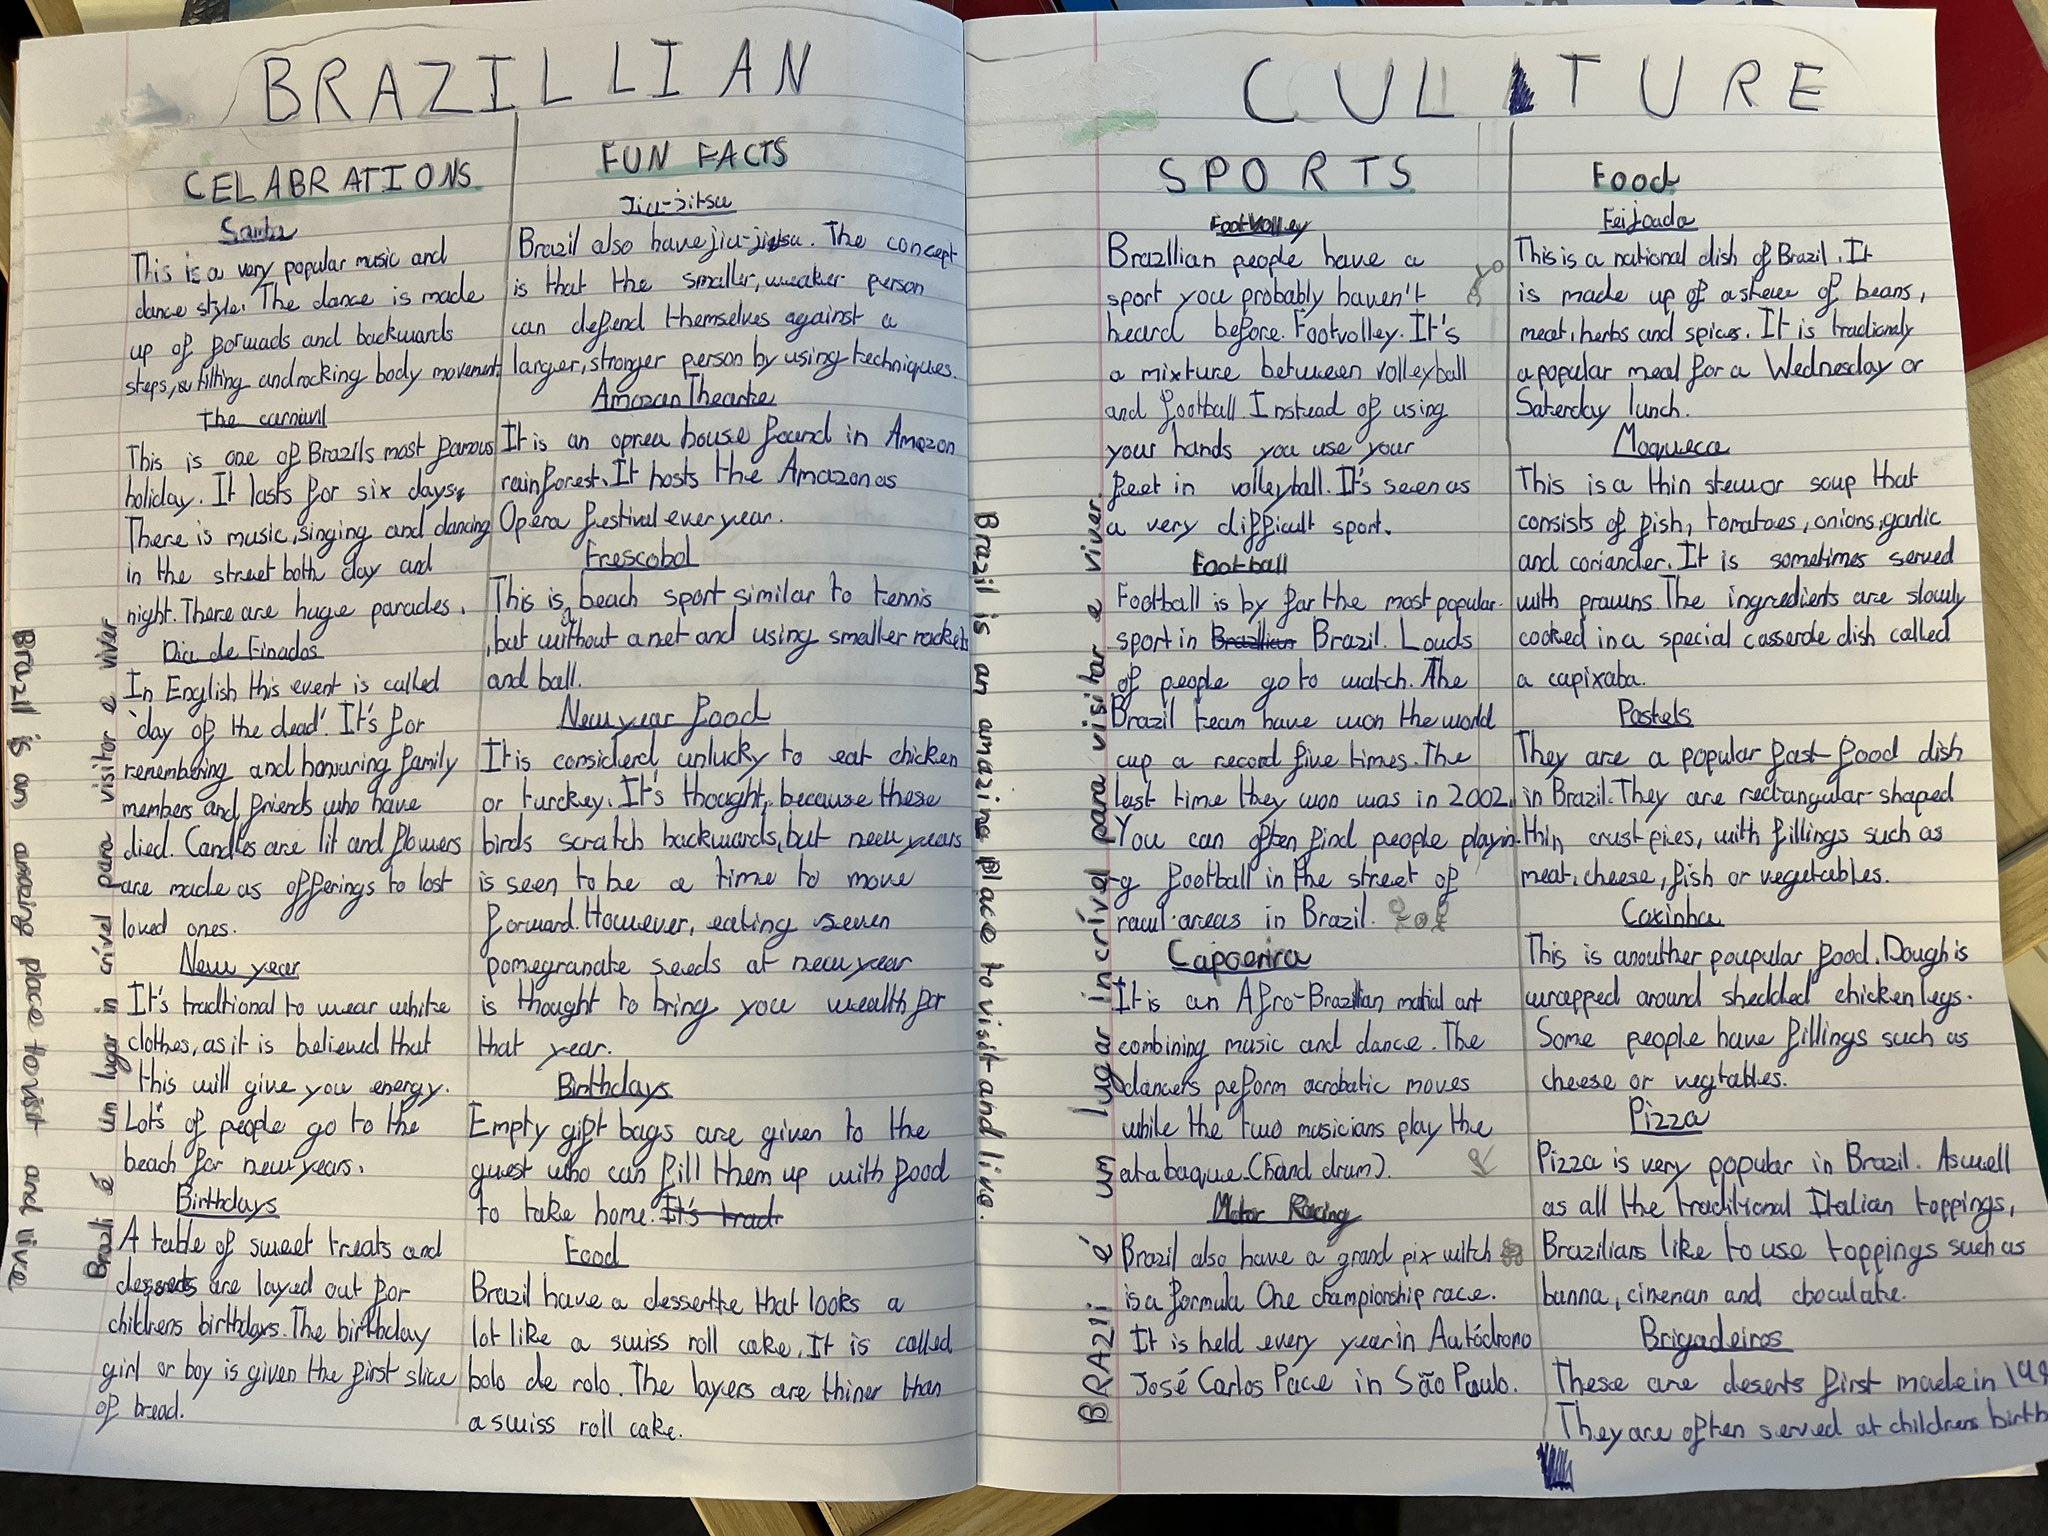 BRAZILLIAN
CELABRATIONS
Samba
This is a very popular music and
dance style. The dance is made
up of forwads and backwards
steps, tilting and rocking body movement
The carnivil
This is one of Brazils most famous
holiday. It lasts for six days.
There is music, singing and dancing
in the street both day and
night. There are huge parades.
Dia de Finados
In English this event is called
'day of the dead'. It's for
remembering and honouring family
members and friends who have
died. Candles are lit and flowers
are made as offerings to lost
loved ones.
New year
It's tradtional to wear white
clothes, as it is believed that
this will give you energy.
Lots of people go to the
beach for new years.
Birthdays
A table of sweet treats and
desserts are layed out for
childrens birthdays. The birthday
girl or boy is given the first slice
of bread.
FUN FACTS
Jiu-jitsu
Brazil also have jiu-jitsu. The concept
is that the smaller, weaker person
can defend themselves against a
larger, stronger person by using techniques.
Amazan Thearte
It is an oprea house found in Amazon
rainforest. It hosts the Amazonas
Opera festival every year.
Frescobol
This is a beach sport similar to tennis
, but without a net and using smaller rackets
and ball.
New year food
It is considerd unlucky to eat chicken
or turckey. It's thought, because these
birds scratch backwards, but new years
is seen to be a time to move
forward. However, eating seven
pomegranate seeds at new year
is thought to bring you wealth for
that year.
Birthdays
Empty gift bags are given to the
guest who can fill them up with food
to take home. It's trad
Food
Brazil have a dessertte that looks a
lot like a swiss roll cake. It is called
bolo de rolo. The layers are thiner than
a swiss roll cake.
Brazil is an amazing place to visit and live
Brazli é um lugar in crível para visitor e viver
CULTURE
SPORTS
Footvolley
Brazllian people have a
sport you probably haven't
heard before. Footvolley. It's
a mixture between volleyball
and football. Instead of using
your hands you use your
feet in volleyball. It's seen as
a very difficult sport.
Football
Football is by far the most popular
sport in Brazllian Brazil. Louds
of people go to watch. The
Brazil team have won the world
cup a record five times. The
last time they won was in 2002.
You can often find people playin
g football in the street of
raul areas in Brazil.
Capoerira
It is an Afro-Brazilian matial art
combining music and dance. The
dancers peform acrobatic moves
while the two musicians play the
atabaque. (hand drum).
Motor Racing
Brazil also have a grand pix witch
is a formula One championship race.
It is held every year in Autódrono
José Carlos Pace in São Paulo.
Food
Feijoada
This is a national dish of Brazil. It
is made up of a stew of beans,
meat, herbs and spices. It is tradionaly
a popular meal for a Wednesday or
Saterday lunch.
Moqueca
This is a thin stew or soup that
consists of fish, tomatoes, onions, garlic
and coriander. It is sometimes served
with prawns. The ingredients are slowly
cooked in a special casserole dish called
a capixaba.
Pastels
They are a popular fast-food dish
in Brazil. They are rectangular-shaped
thin crust pies, with fillings such as
meat, cheese, fish or vegetables.
Coxinha
This is anouther poupular food. Dough is
wrapped around shedded chicken legs.
Some people have fillings such as
cheese or vegtables.
Pizza
Pizza is very popular in Brazil. Aswell
as all the traditional Italian toppings,
Brazilians like to use toppings such as
banna, cinenan and choculate.
Brigadeiros
These are deserts first made in 19
They are often served at childrens birth
Brazil is an amazing place to visit and live.
BRAZli é um lugar incrível para visitor e viver.